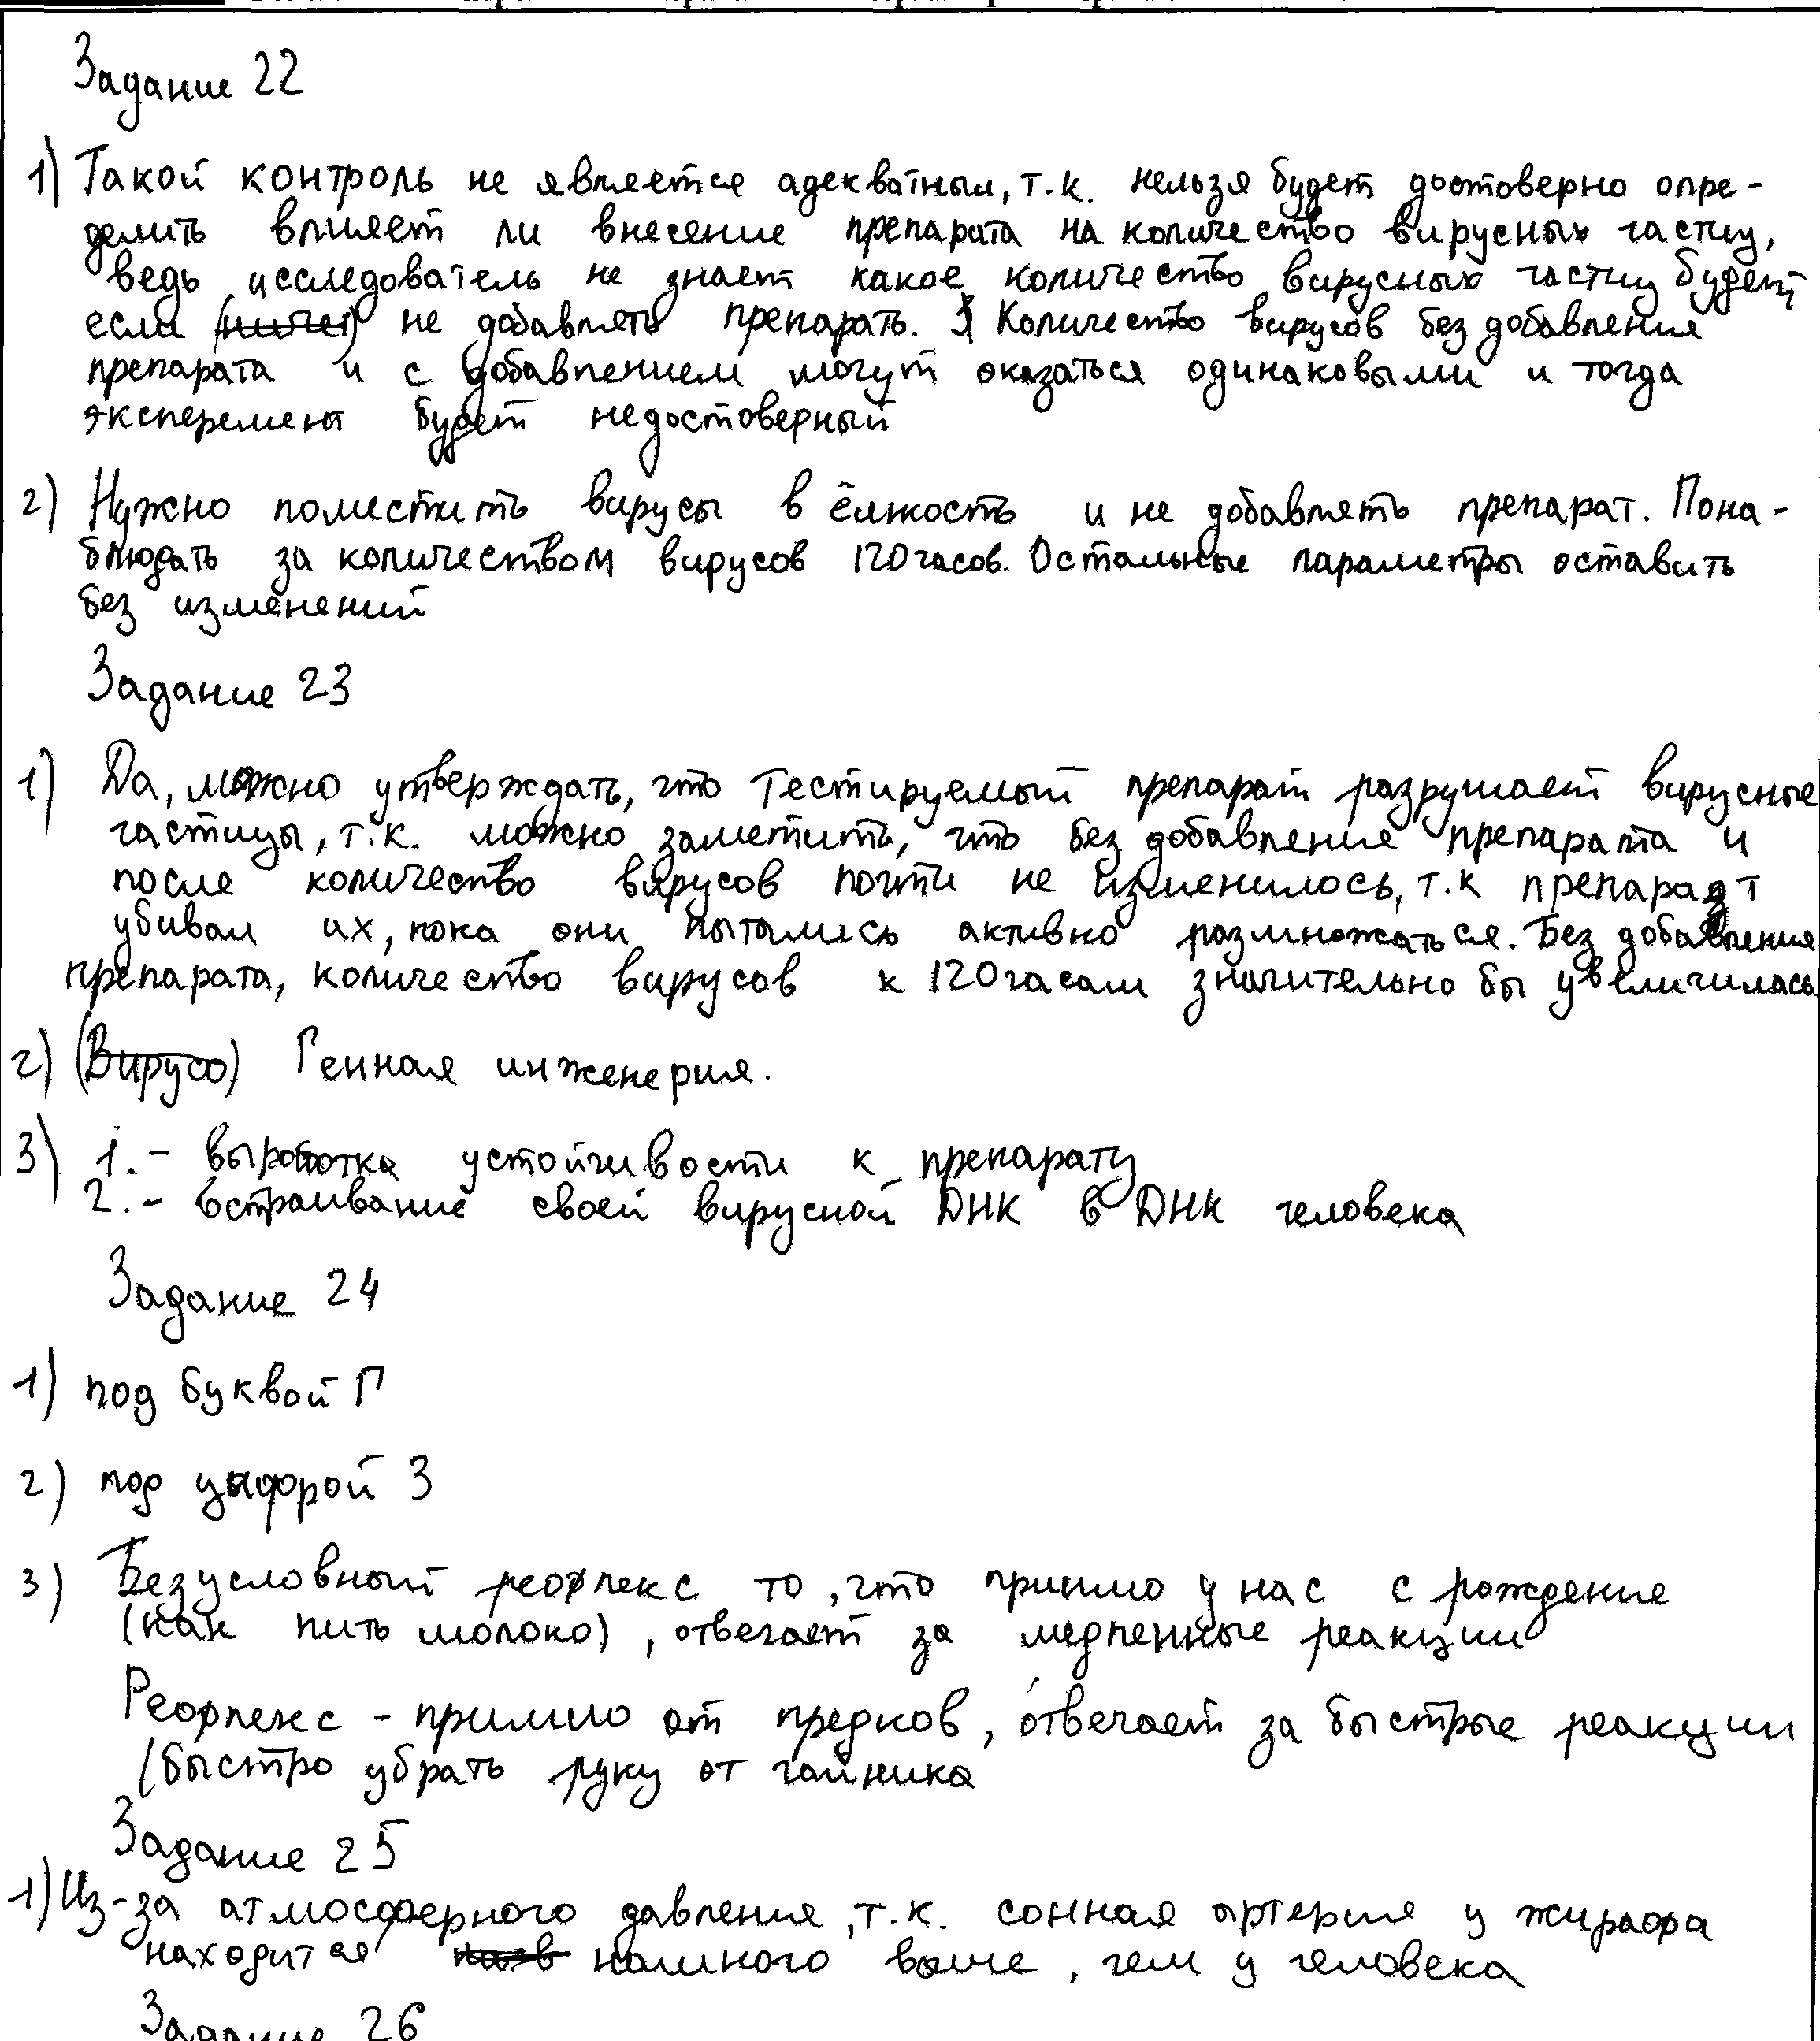 Задание 22
1) Такой контроль не является адекватным, т.к. нельзя будет достоверно опре-
делить влияет ли внесение препарата на количество вирусных частиц,
ведь исследователь не знает какое количество вирусных частиц будет
если не добавлять препарать. Количество вирусов без добавления
препарата и с добавлением могут оказаться одинаковыми и тогда
эксперемент будет недостоверный
2) Нужно поместить вирусы в ёмкость и не добавлять препарат. Пона-
блюдать за количеством вирусов 120 часов. Остальные параметры оставить
без изменений
Задание 23
1) Да, можно утверждать, что тестируемый препарат разрушает вирусные
частицы, т.к. можно заметить, что без добавления препарата и
после количество вирусов почти не изменилось, т.к препарат
убивал их, пока они пытались активно размножаться. Без добавления
препарата, количество вирусов к 120 часам значительно бы увеличилась
2) (Вирусо) Генная инженерия.
3) 1. - выработка устойчивости к препарату
2. - встраивание своей вирусной ДНК в ДНК человека
Задание 24
1) под буквой Г
2) под цифрой 3
3) Безусловный рефлекс то, что пришло у нас с рождение
(как пить молоко), отвечает за медленные реакции
Рефлекс - пришло от предков, отвечает за быстрые реакции
(быстро убрать руку от чайника
Задание 25
1) Из-за атмосферного давления, т.к. сонная артерия у жирафа
находится намного выше, чем у человека
Задание 26